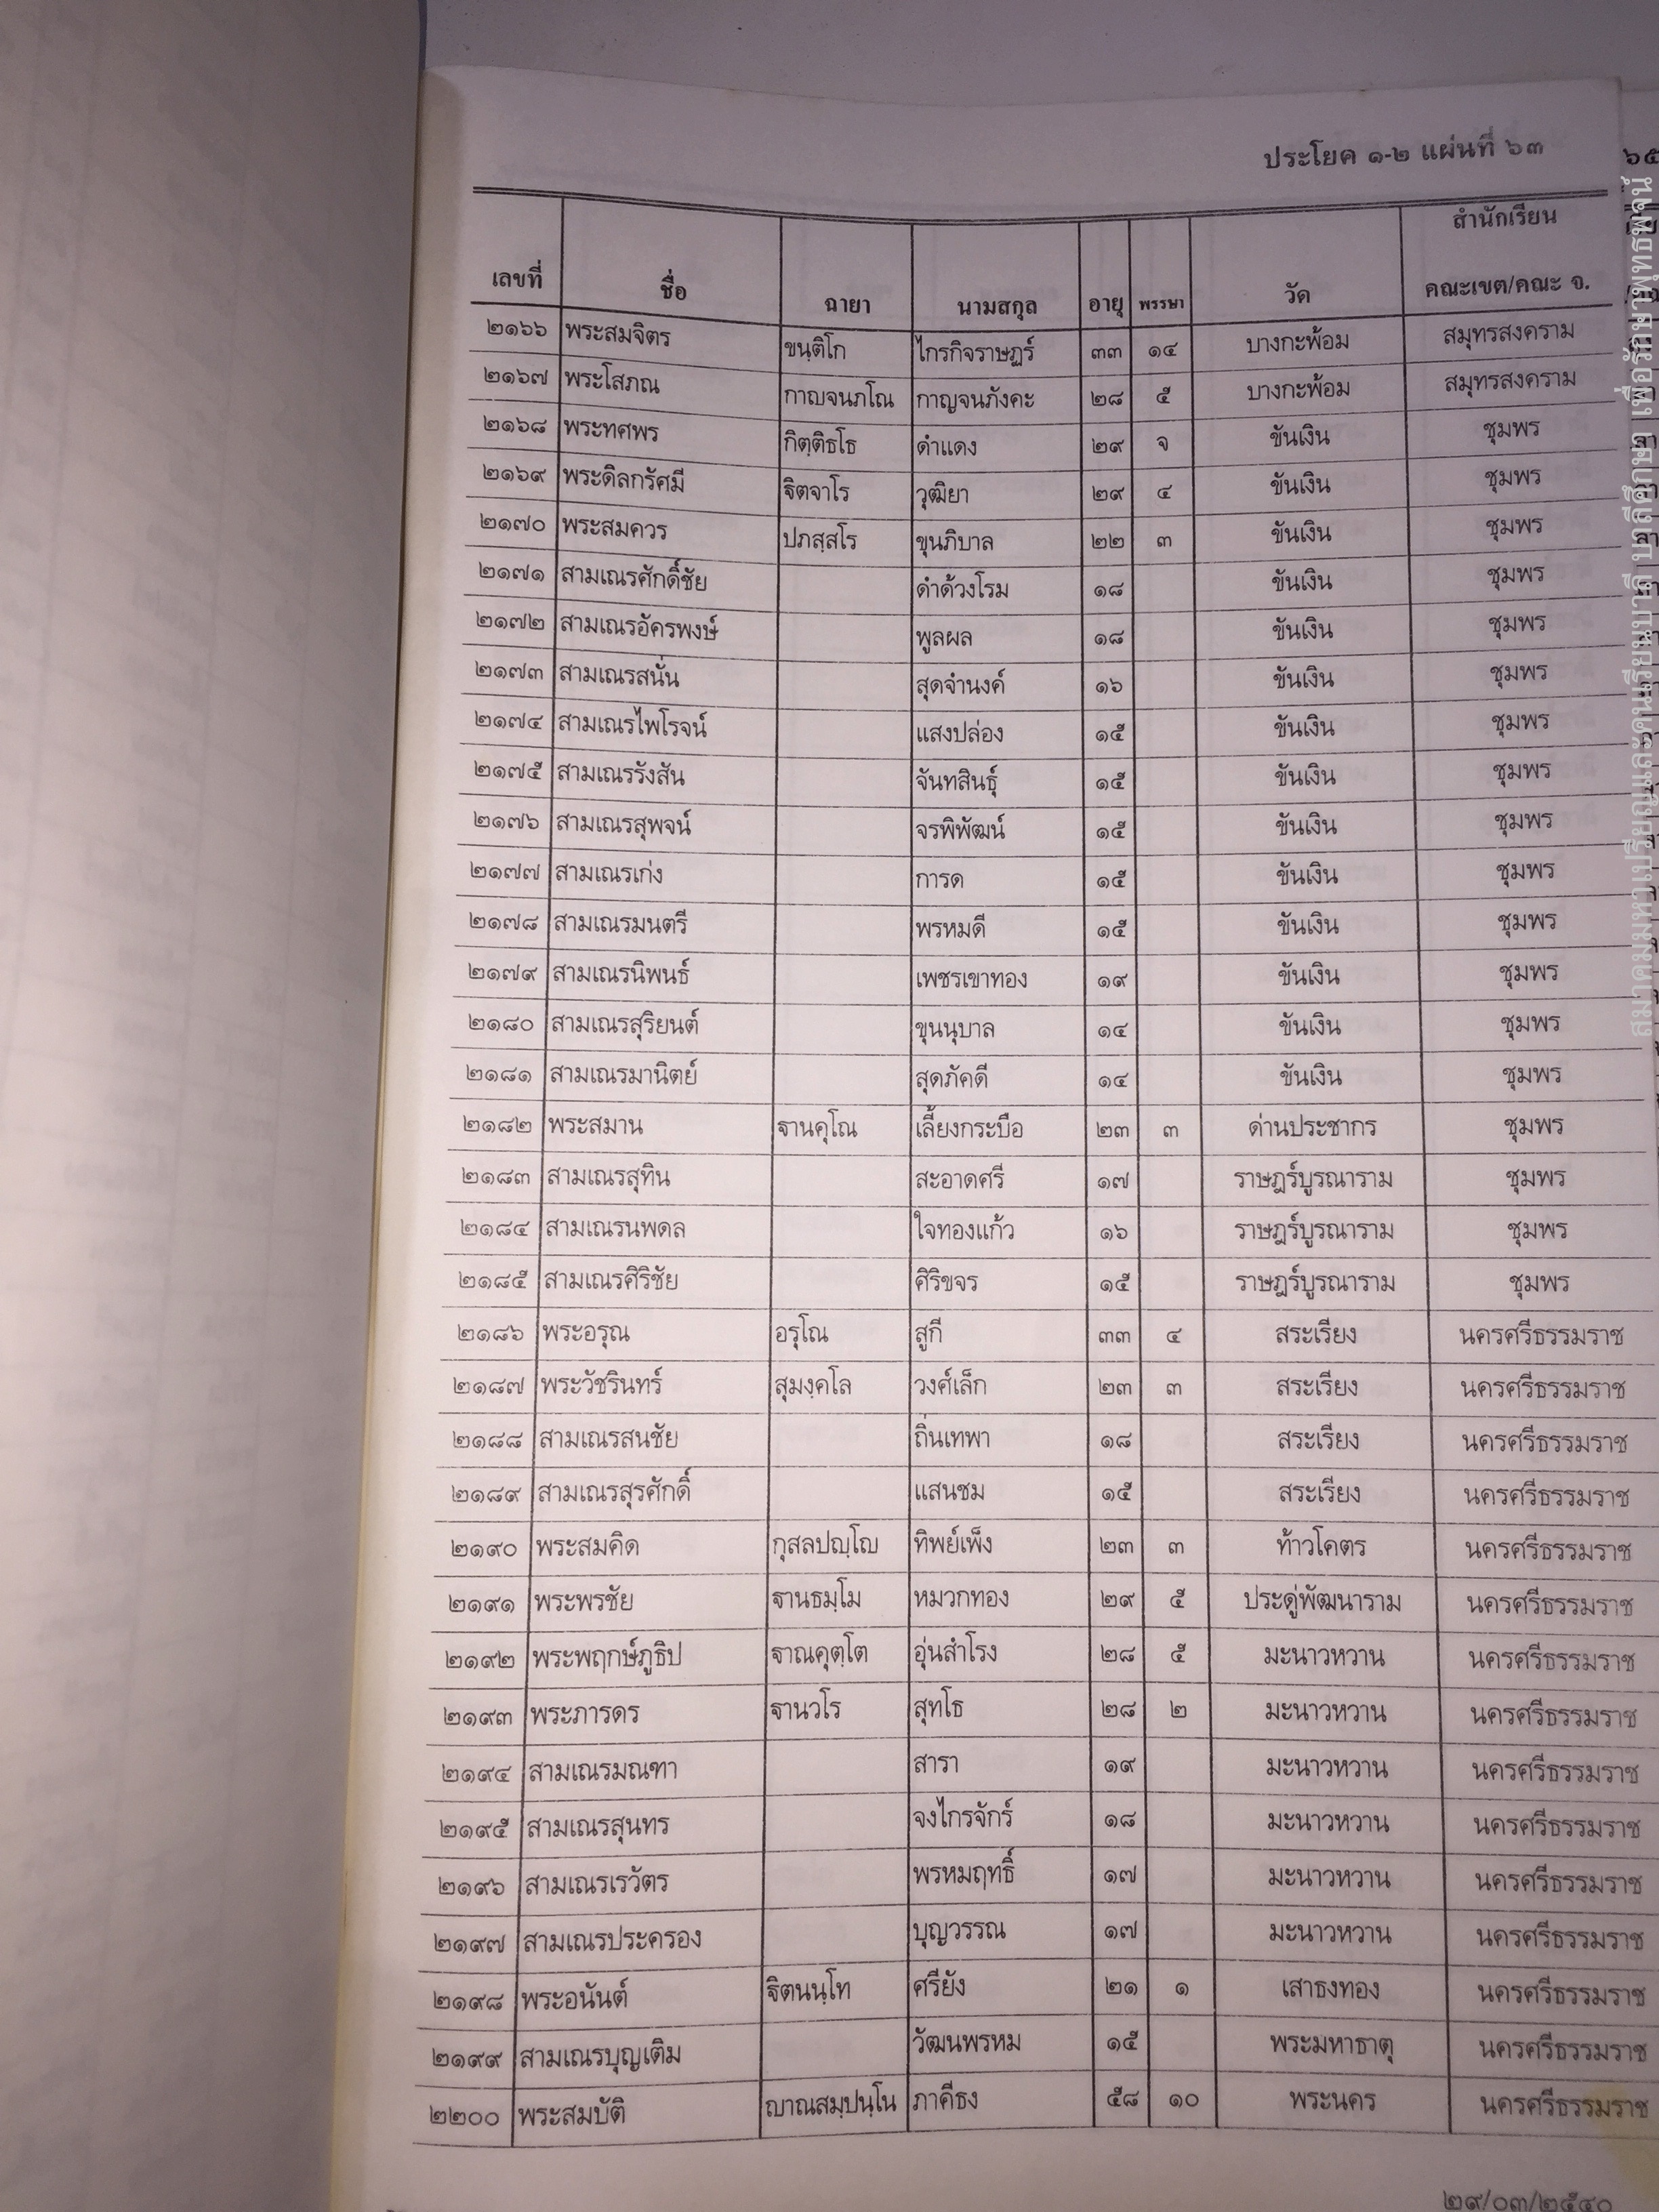 ประโยค ๑-๒ แผ่นที่ ๖๓
เลขที่ ชื่อ ฉายา นามสกุล อายุ พรรษา วัด สำนักเรียน คณะเขต/คณะ จ.
๒๑๖๖ พระสมจิตร ขนฺติโก ไกรกิจราษฏร์ ๓๓ ๑๔ บางกะพ้อม สมุทรสงคราม
๒๑๖๗ พระโสภณ กาญจนภโณ กาญจนภังคะ ๒๘ ๕ บางกะพ้อม สมุทรสงคราม
๒๑๖๘ พระทศพร กิตฺติธโธ ดำแดง ๒๙ จ ขันเงิน ชุมพร
๒๑๖๙ พระดิลกรัศมี ฐิตจาโร วุฒิยา ๒๙ ๔ ขันเงิน ชุมพร
๒๑๗๐ พระสมควร ปภสฺสโร ขุนภิบาล ๒๒ ๓ ขันเงิน ชุมพร
๒๑๗๑ สามเณรศักดิ์ชัย ดำด้วงโรม ๑๘ ขันเงิน ชุมพร
๒๑๗๒ สามเณรอัครพงษ์ พูลผล ๑๘ ขันเงิน ชุมพร
๒๑๗๓ สามเณรสนั่น สุดจำนงค์ ๑๖ ขันเงิน ชุมพร
๒๑๗๔ สามเณรไพโรจน์ แสงปล่อง ๑๕ ขันเงิน ชุมพร
๒๑๗๕ สามเณรรังสัน จันทสินธุ์ ๑๕ ขันเงิน ชุมพร
๒๑๗๖ สามเณรสุพจน์ จรพิพัฒน์ ๑๕ ขันเงิน ชุมพร
๒๑๗๗ สามเณรเก่ง การด ๑๕ ขันเงิน ชุมพร
๒๑๗๘ สามเณรมนตรี พรหมดี ๑๕ ขันเงิน ชุมพร
๒๑๗๙ สามเณรนิพนธ์ เพชรเขาทอง ๑๙ ขันเงิน ชุมพร
๒๑๘๐ สามเณรสุริยนต์ ขุนนุบาล ๑๔ ขันเงิน ชุมพร
๒๑๘๑ สามเณรมานิตย์ สุดภัคดี ๑๔ ขันเงิน ชุมพร
๒๑๘๒ พระสมาน ฐานคุโณ เลี้ยงกระบือ ๒๓ ๓ ด่านประชากร ชุมพร
๒๑๘๓ สามเณรสุทิน สะอาดศรี ๑๗ ราษฎร์บูรณาราม ชุมพร
๒๑๘๔ สามเณรนพดล ใจทองแก้ว ๑๖ ราษฎร์บูรณาราม ชุมพร
๒๑๘๕ สามเณรศิริชัย ศิริขจร ๑๕ ราษฎร์บูรณาราม ชุมพร
๒๑๘๖ พระอรุณ อรุโณ สูกี ๓๓ ๔ สระเรียง นครศรีธรรมราช
๒๑๘๗ พระวัชรินทร์ สุมงฺคโล วงศ์เล็ก ๒๓ ๓ สระเรียง นครศรีธรรมราช
๒๑๘๘ สามเณรสนชัย ถิ่นเทพา ๑๘ สระเรียง นครศรีธรรมราช
๒๑๘๙ สามเณรสุรศักดิ์ แสนชม ๑๕ สระเรียง นครศรีธรรมราช
๒๑๙๐ พระสมคิด กุสลปญฺโญ ทิพย์เพ็ง ๒๓ ๓ ท้าวโคตร นครศรีธรรมราช
๒๑๙๑ พระพรชัย ฐานธมฺโม หมวกทอง ๒๙ ๕ ประดู่พัฒนาราม นครศรีธรรมราช
๒๑๙๒ พระพฤกษ์ภูธิป ฐาณคุตฺโต อุ่นสำโรง ๒๘ ๕ มะนาวหวาน นครศรีธรรมราช
๒๑๙๓ พระภารดร ฐานวโร สุทโธ ๒๘ ๒ มะนาวหวาน นครศรีธรรมราช
๒๑๙๔ สามเณรมณฑา สารา ๑๙ มะนาวหวาน นครศรีธรรมราช
๒๑๙๕ สามเณรสุนทร จงไกรจักร์ ๑๘ มะนาวหวาน นครศรีธรรมราช
๒๑๙๖ สามเณรเรวัตร พรหมฤทธิ์ ๑๗ มะนาวหวาน นครศรีธรรมราช
๒๑๙๗ สามเณรประครอง บุญวรรณ ๑๗ มะนาวหวาน นครศรีธรรมราช
๒๑๙๘ พระอนันต์ ฐิตนนฺโท ศรียัง ๒๑ ๑ เสาธงทอง นครศรีธรรมราช
๒๑๙๙ สามเณรบุญเติม วัฒนพรหม ๑๕ พระมหาธาตุ นครศรีธรรมราช
๒๒๐๐ พระสมบัติ ญาณสมฺปนฺโน ภาคีธง ๕๘ ๑๐ พระนคร นครศรีธรรมราช
๒๙/๐๓/๒๕๔๐
สมาคมมหาเปรียญและคนเรียนบาลี บาลีศึกษา เพื่อรักษาพุทธพจน์